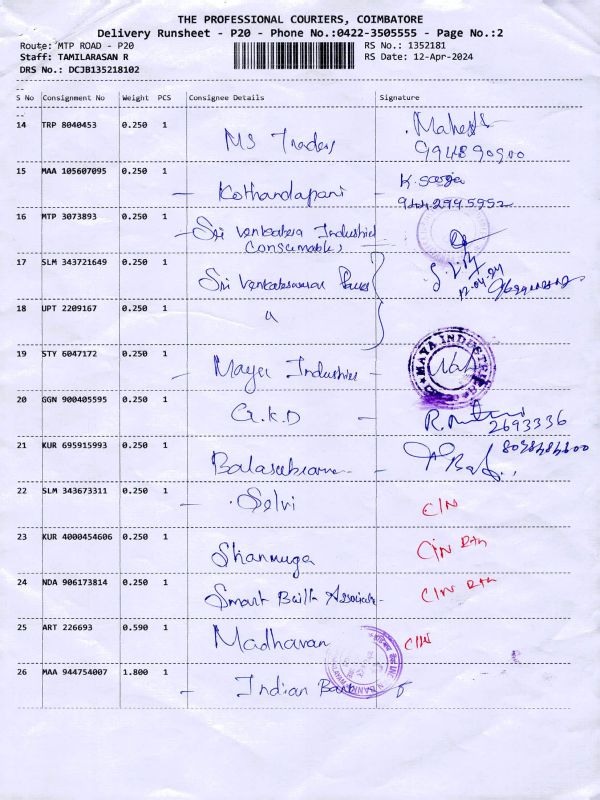 THE PROFESSIONAL COURIERS, COIMBATORE
Delivery Runsheet - P20 - Phone No.:0422-3505555 - Page No.:2
Route: MTP ROAD - P20 RS No.: 1352181
Staff: TAMILARASAN R RS Date: 12-Apr-2024
DRS No.: DCJB135218102
S No Consignment No Weight PCS Consignee Details Signature
14 TRP 8040453 0.250 1 MS Traders Mahesh
15 MAA 105607095 0.250 1 Kothandapani
9442945952
16 MTP 3073893 0.250 1 Sri Venkatesa Industrial
Consumables
17 SLM 343721649 0.250 1 Sri Venkateswara
12.04.24
18 UPT 2209167 0.250 1 "
19 STY 6047172 0.250 1 Maya Industries MAYA INDUSTRIES
20 GGN 900405595 0.250 1 G.K.D
2693336
21 KUR 695915993 0.250 1 Balasubramani
22 SLM 343673311 0.250 1 Selvi C/N
23 KUR 4000454606 0.250 1 Shanmuga C/N Rtn
24 NDA 906173814 0.250 1 Smart Built Associate C/N Rtn
25 ART 226693 0.590 1 Madhavan C/N
26 MAA 944754007 1.800 1 Indian Bank